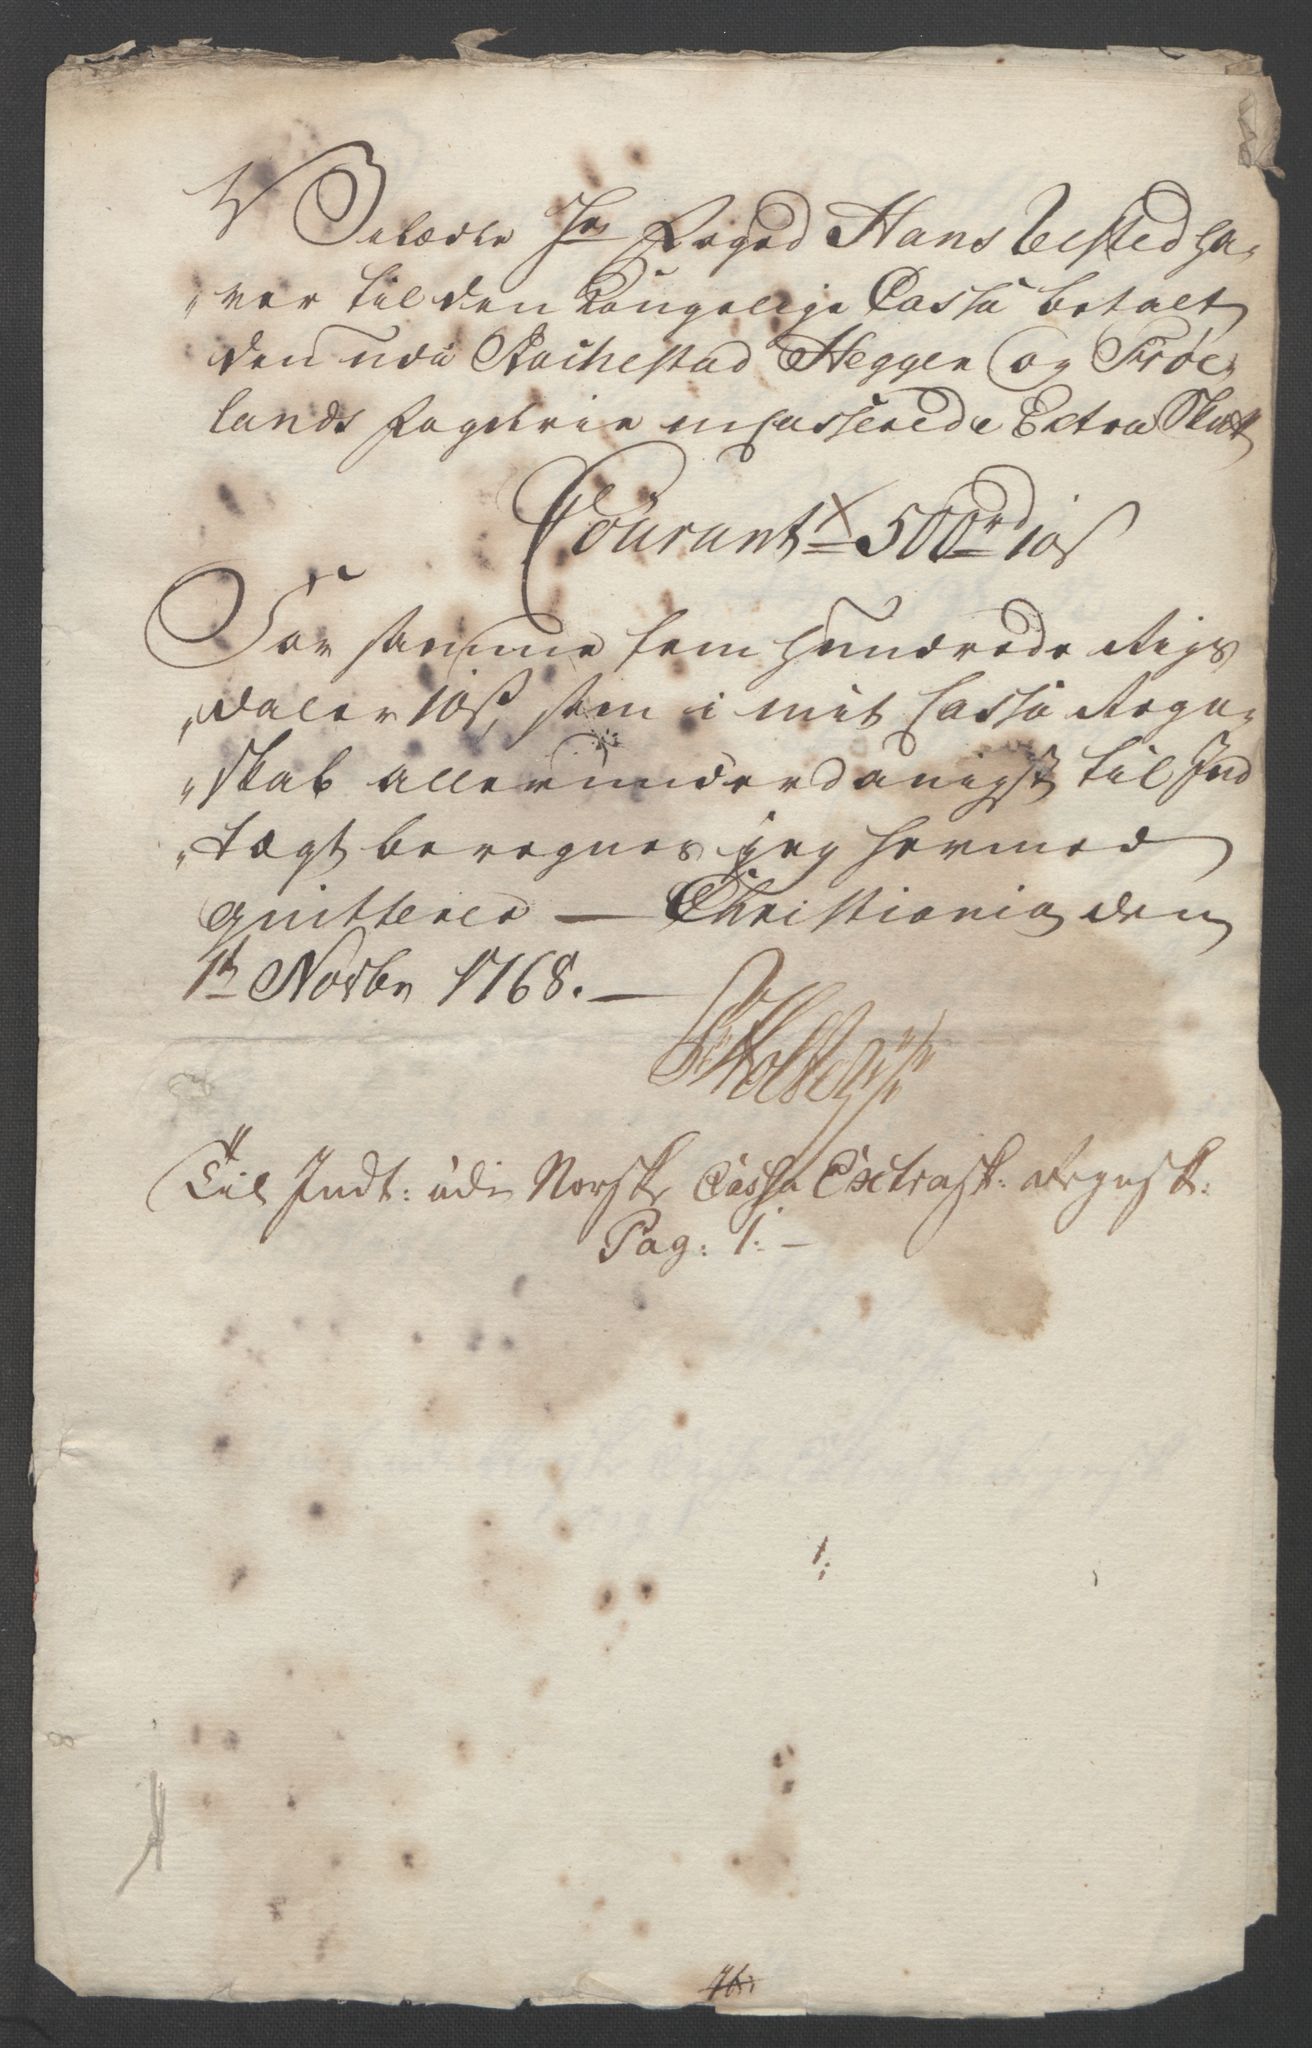 Velædle Hr Foged Hans Vested ha-
„ver til den Kongelige Cassa betalt
den udi Rachestad Heggen og Frøe-
lands Fogderie incasserede Extra Skatt
Courant 500rd 10s
For samme fem Hundrede Rigs
„daler 10s, som i mit Cassa Regn-
„skab allerunderdanigst til Ind
„tægt beregnes jeg hermed
quitterer — Christiania den
1te Novbr 1768. —
Til Indt: udi Norsk Cassa Extrask: Regnsk:
Pag: 1: —
1: